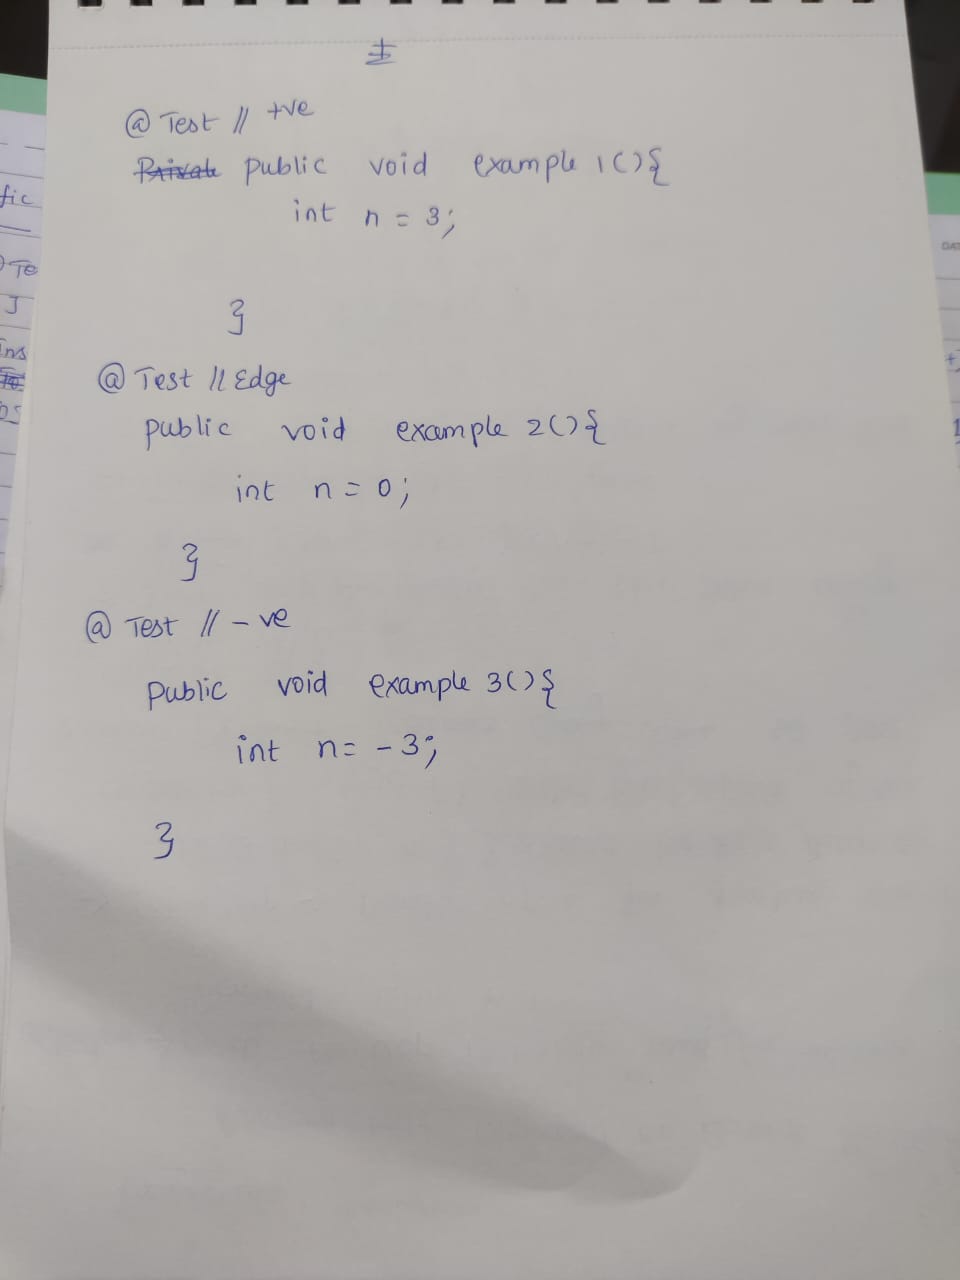 @ Test // +ve
public void example 1(){
int n = 3;
}
@ Test // Edge
public void example 2(){
int n = 0;
}
@ Test // - ve
public void example 3(){
int n = - 3;
}
fic
Te
J
ins
DAT